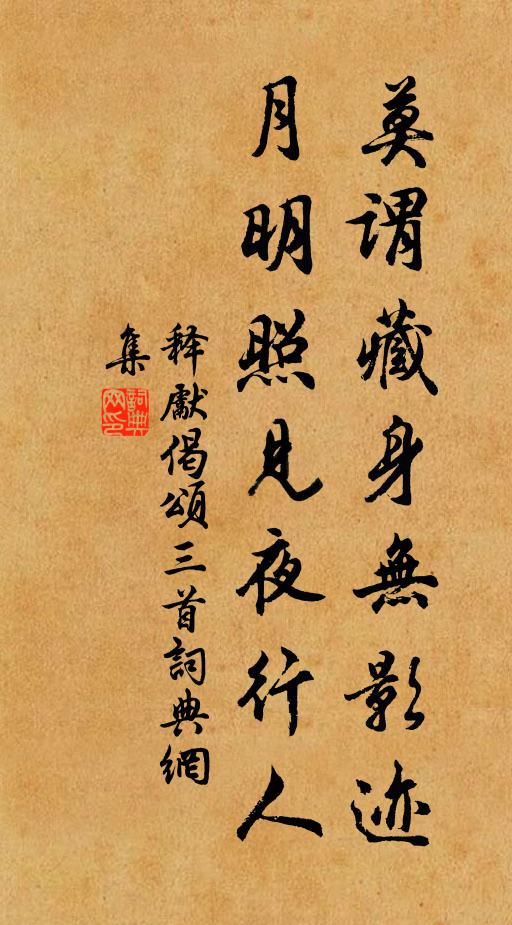 莫谓藏身無影迹
月明照见夜行人
释獻偈頌三首詞典網
集
詞典
网印